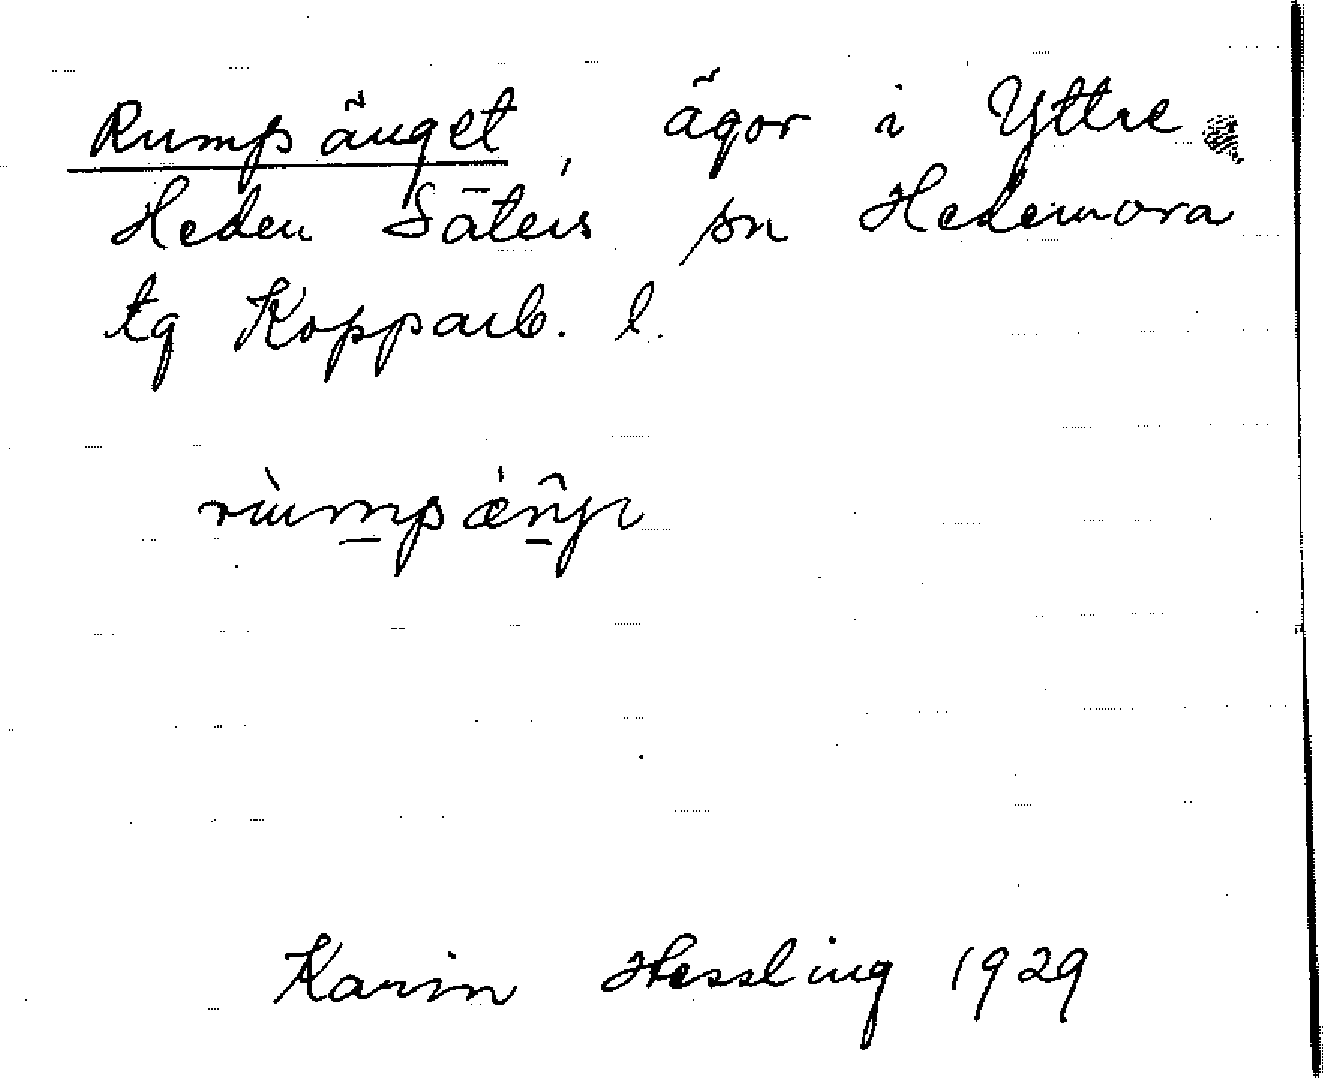 Rumpänget, ägor i Yttre
Heden Säters sn Hedemora
tg Kopparb. l.
Karin Hessling 1929